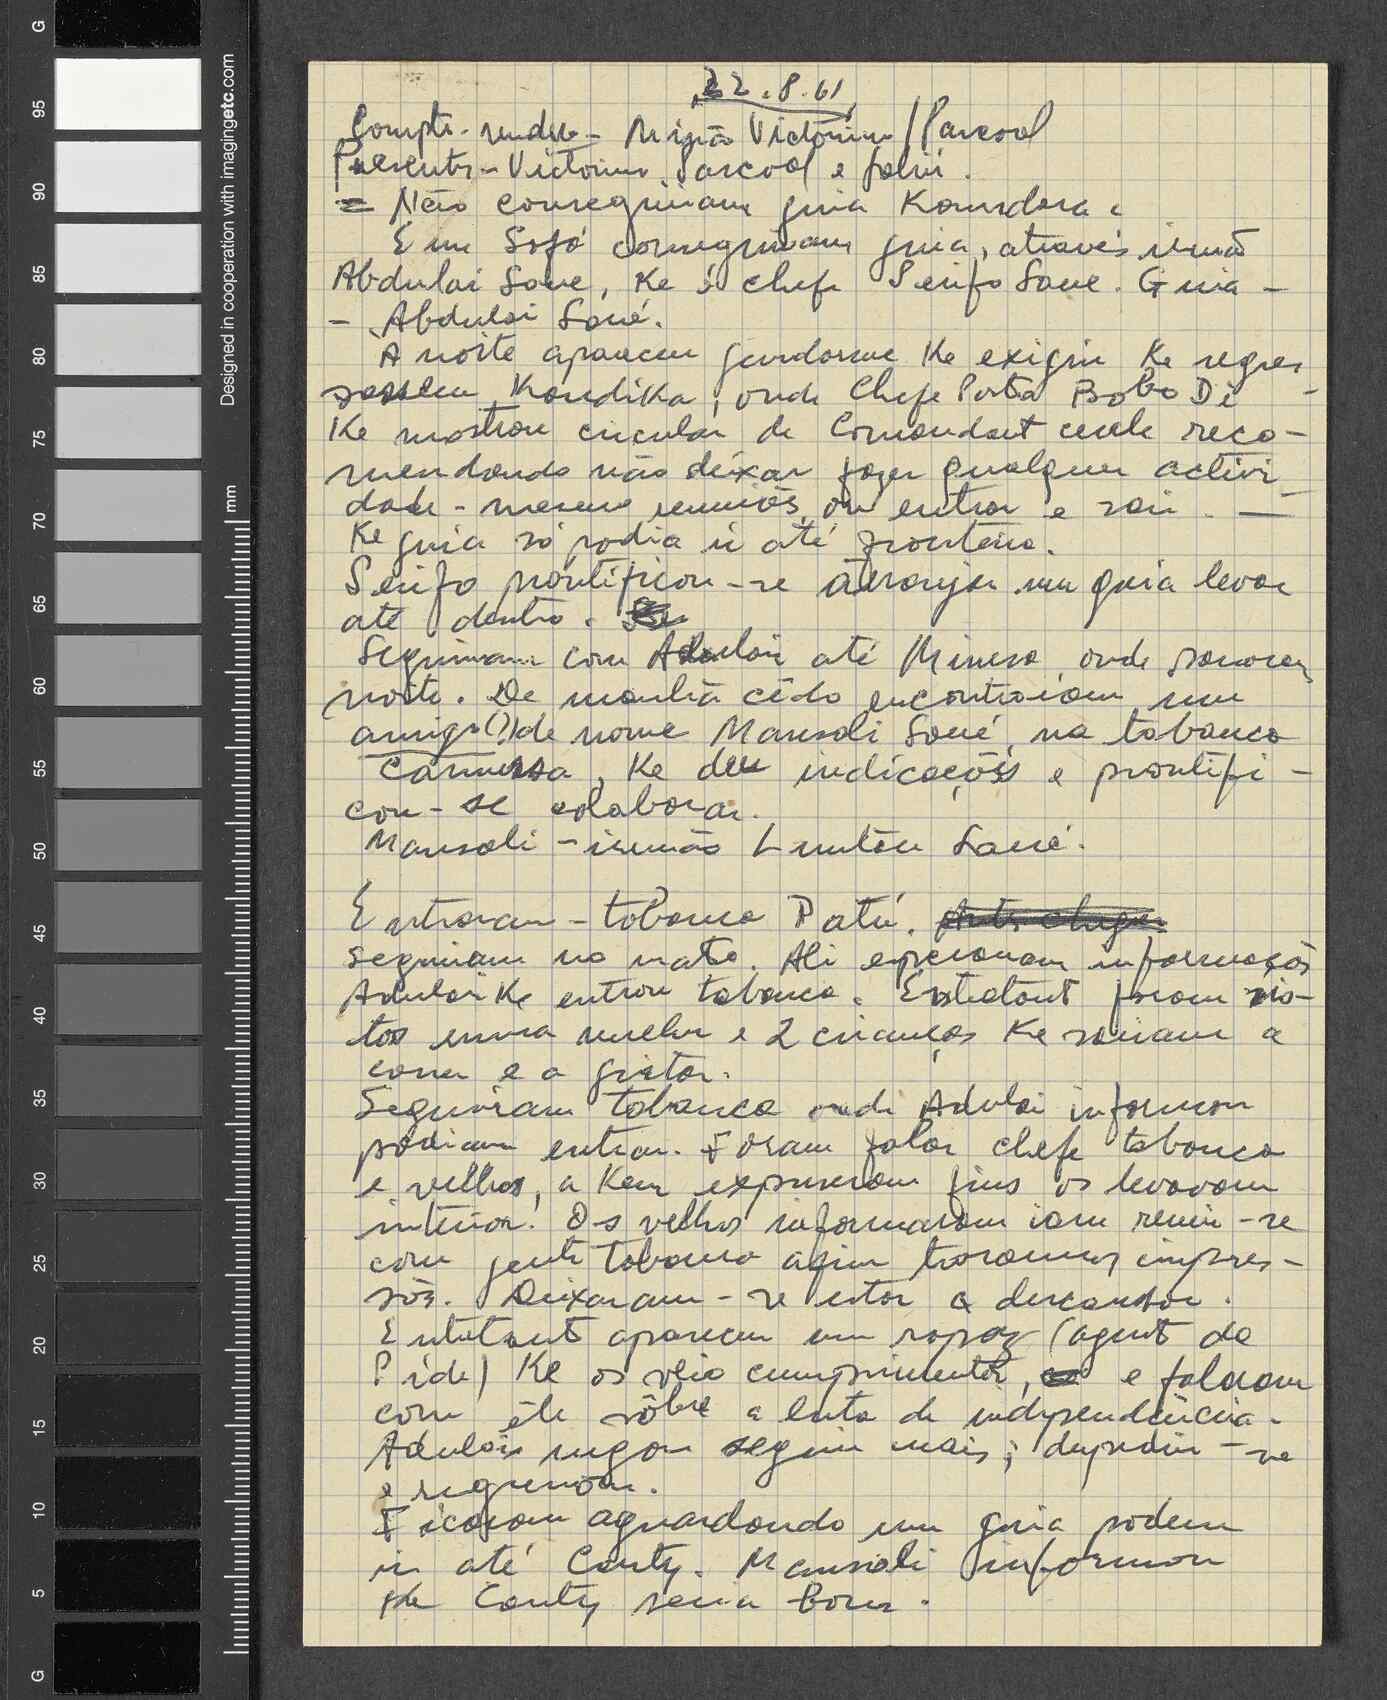 22.8.61
Compte-rendu - Missão Victorino/Pascoal
Presents - Victorino, Pascoal e
= Não conseguiram guia Koundara.
Em Sofó conseguiram guia, através irmão
Abdulai Sane, Ke é chefe Serifo Sane. Guia -
- Abdulai Sané.
À noite apareceu gendarme Ke exigiu Ke regres
sassem KoundiKa, onde Chefe Posto Bobo Di -
Ke mostrou circular do Comandant cercle reco-
mendando não deixar fazer qualquer activi
dade - mesmo reuniõs, ou entrar e sair. —
Ke guia só podia ir até fronteira.
Serifo prontificou-se arranjar um guia levar
até dentro.
Seguiram com Adulai até onde passaram
noite. De manhã cêdo encontraram um
amigo(?) de nome Mansoli Sané, na tabanca
, Ke deu indicaçõis e prontifi-
cou-se colaborar.
Mansoli - irmão Sané.
Entraram - tabanca Patú.
Seguiram no mato. Ali esperaram informaçõs
Adulai Ke entrou tabanca. Entretant foram vis-
tos numa mulher e 2 crianças Ke sairam a
correr e a gritar.
Seguiram tabanca onde Adulai informou
podiam entrar. Foram falar chefe tabanca
e velhos, a Kem expuseram fins os levavam
interior. Os velhos informaram iam reunir-se
com gente tabanca afim trocarmos impres-
sõs. Deixaram-se estar a descansar.
Entretant apareceu um rapaz (agent da
Pide) Ke os veio cumprimentar, e falaram
com êle sôbre a luta de independência.
Adulai negou seguir mais; despediu-se
e regressou.
Ficaram aguardando um guia podem
ir até Canty. Mansoli informou
Ke Canty seria bom.